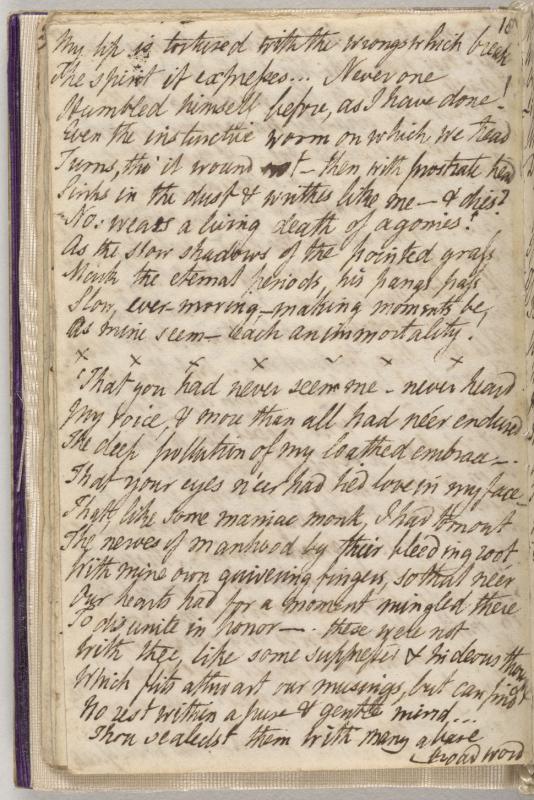 16
My lip is tortured with the wrongs which break
The spirit it expresses... Never one
Humbled himself before, as I have done!
Even the instinctive worm on which we tread
Turns, tho' it wound not – then with prostrate head
Sinks in the dust & writhes like me – & dies?
No: wears a living death of agonies!
As the slow shadows of the pointed grass
Mark the eternal periods, his pangs pass
Slow, ever-moving – making moments be,
As mine seem – Each an immortality.
x x x x x x x
'That you had never seen me – never heard
My voice, & more than all had ne'er endured
The deep pollution of my loathed embrace –
That your eyes ne'er had lied love in my face –
That, like some maniac monk, I had torn out
The nerves of manhood by their bleeding root
With mine own quivering fingers, so that ne'er
Our hearts had for a moment mingled there
To disunite in horror – these were not
With thee, like some suppressed & hideous thought
Which flits athwart our musings, but can find
No rest within a pure & gentle mind...
Thou sealedst them with many a bare
broad word